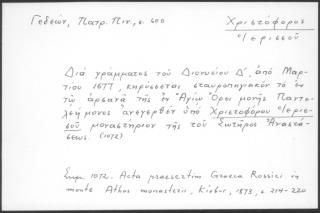 Γεδεών, Πατρ. Πιν., σ. 600
Χριστόφορος
Ἱερισσοῦ
Διά γράμματος τοῦ Διονυσίου Δ', ἀπό Μαρ-
τίου 1677, κηρύσσεται σταυροπηγιακόν τό ἐν
τῷ ἀρσανᾷ τῆς ἐν Ἁγίῳ Ὄρει μονῆς Παντο-
λεήμονος ἀνεγερθέν ὑπό Χριστοφόρου Ἱερισ-
σοῦ μοναστήριον τῆς τοῦ Σωτῆρος Ἀναστά-
σεως. (1072)
Σημ. 1072. Acta praesertim Graeca Rossici in
monte Athos monasterii, Kiobur, 1873, σ. 214-220